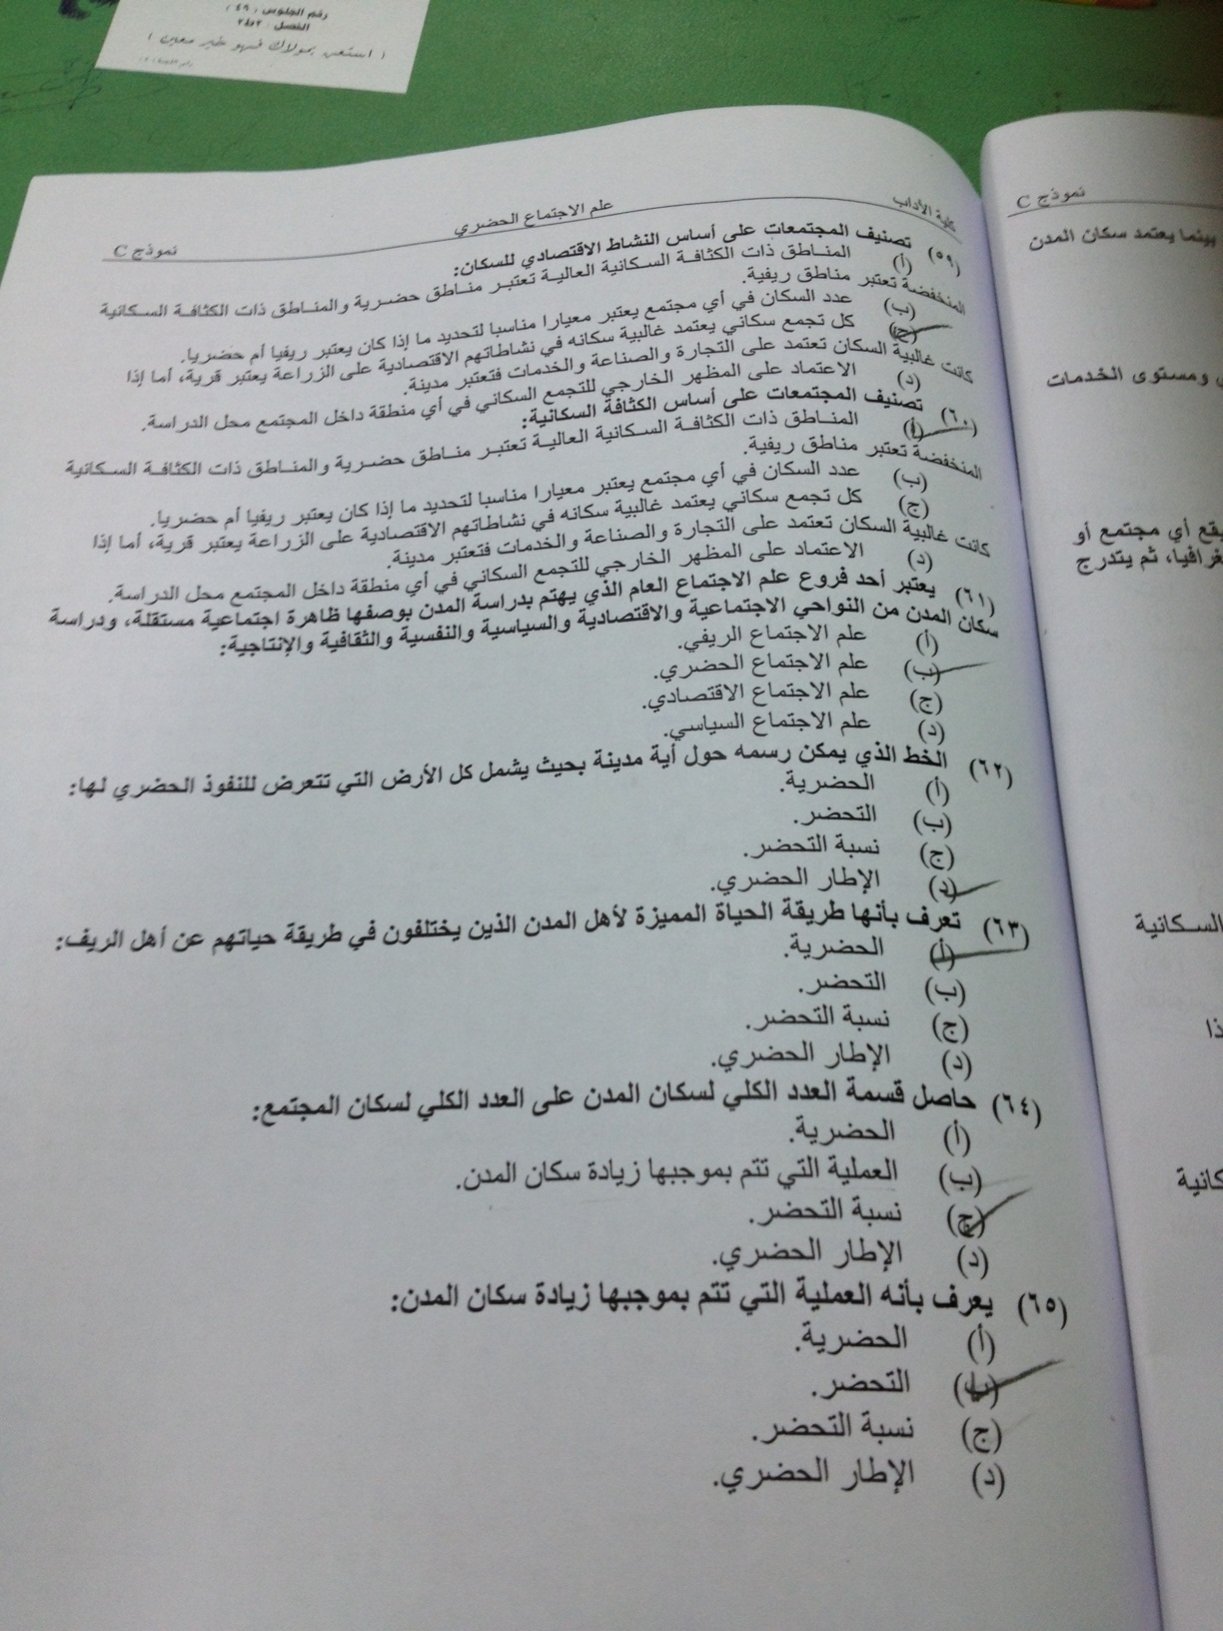 رقم الجلوس : (٤٩)
الفصل : ٢ط٢
( استعن بمولاك فهو خير معين )
كلية الآداب
علم الاجتماع الحضري
نموذج C
(٥٩) تصنيف المجتمعات على أساس النشاط الاقتصادي للسكان:
(أ) المناطق ذات الكثافة السكانية العالية تعتبر مناطق حضرية والمناطق ذات الكثافة السكانية
المنخفضة تعتبر مناطق ريفية.
(ب) عدد السكان في أي مجتمع يعتبر معيارا مناسبا لتحديد ما إذا كان يعتبر ريفيا أم حضريا.
(ج) كل تجمع سكاني يعتمد غالبية سكانه في نشاطاتهم الاقتصادية على الزراعة يعتبر قرية، أما إذا
كانت غالبية السكان تعتمد على التجارة والصناعة والخدمات فتعتبر مدينة.
(د) الاعتماد على المظهر الخارجي للتجمع السكاني في أي منطقة داخل المجتمع محل الدراسة.
(٦٠) تصنيف المجتمعات على أساس الكثافة السكانية:
(أ) المناطق ذات الكثافة السكانية العالية تعتبر مناطق حضرية والمناطق ذات الكثافة السكانية
المنخفضة تعتبر مناطق ريفية.
(ب) عدد السكان في أي مجتمع يعتبر معيارا مناسبا لتحديد ما إذا كان يعتبر ريفيا أم حضريا.
(ج) كل تجمع سكاني يعتمد غالبية سكانه في نشاطاتهم الاقتصادية على الزراعة يعتبر قرية، أما إذا
كانت غالبية السكان تعتمد على التجارة والصناعة والخدمات فتعتبر مدينة.
(د) الاعتماد على المظهر الخارجي للتجمع السكاني في أي منطقة داخل المجتمع محل الدراسة.
(٦١) يعتبر أحد فروع علم الاجتماع العام الذي يهتم بدراسة المدن بوصفها ظاهرة اجتماعية مستقلة، ودراسة
سكان المدن من النواحي الاجتماعية والاقتصادية والسياسية والنفسية والثقافية والإنتاجية:
(أ) علم الاجتماع الريفي.
(ب) علم الاجتماع الحضري.
(ج) علم الاجتماع الاقتصادي.
(د) علم الاجتماع السياسي.
(٦٢) الخط الذي يمكن رسمه حول أية مدينة بحيث يشمل كل الأرض التي تتعرض للنفوذ الحضري لها:
(أ) الحضرية.
(ب) التحضر.
(ج) نسبة التحضر.
(د) الإطار الحضري.
(٦٣) تعرف بأنها طريقة الحياة المميزة لأهل المدن الذين يختلفون في طريقة حياتهم عن أهل الريف:
(أ) الحضرية.
(ب) التحضر.
(ج) نسبة التحضر.
(د) الإطار الحضري.
(٦٤) حاصل قسمة العدد الكلي لسكان المدن على العدد الكلي لسكان المجتمع:
(أ) الحضرية.
(ب) العملية التي تتم بموجبها زيادة سكان المدن.
(ج) نسبة التحضر.
(د) الإطار الحضري.
(٦٥) يعرف بأنه العملية التي تتم بموجبها زيادة سكان المدن:
(أ) الحضرية.
(ب) التحضر.
(ج) نسبة التحضر.
(د) الإطار الحضري.
نموذج C
بينما يعتمد سكان المدن
ومستوى الخدمات
يقع أي مجتمع أو
ثم يتدرج
السكانية